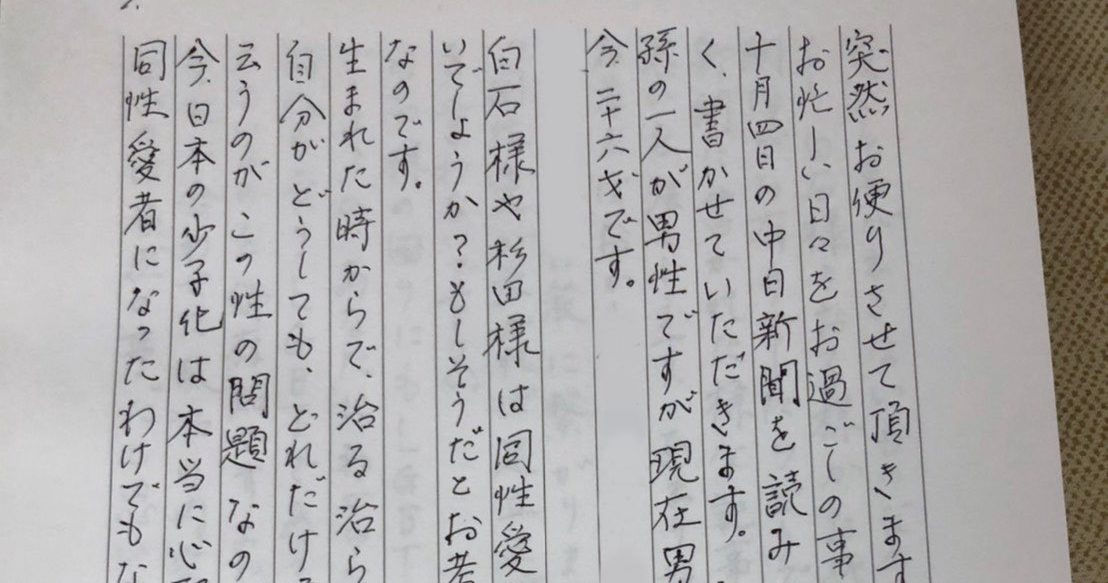 突然お便りさせて頂きます
お忙しい日々をお過ごしの事
十月四日の中日新聞を読み
く、書かせていただきます。
孫の一人が男性ですが現在男
今二十六才です。
白石様や杉田様は同性愛
いでしょうか？もしそうだとお考
なのです。
生まれた時からで、治る治ら
自分がどうしても、どれだけ
云うのがこの性の問題なの
今、日本の少子化は本当に心配
同性愛者になったわけでもな